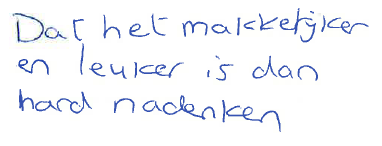 Dat het makkelijker
en leuker is dan
hard nadenken